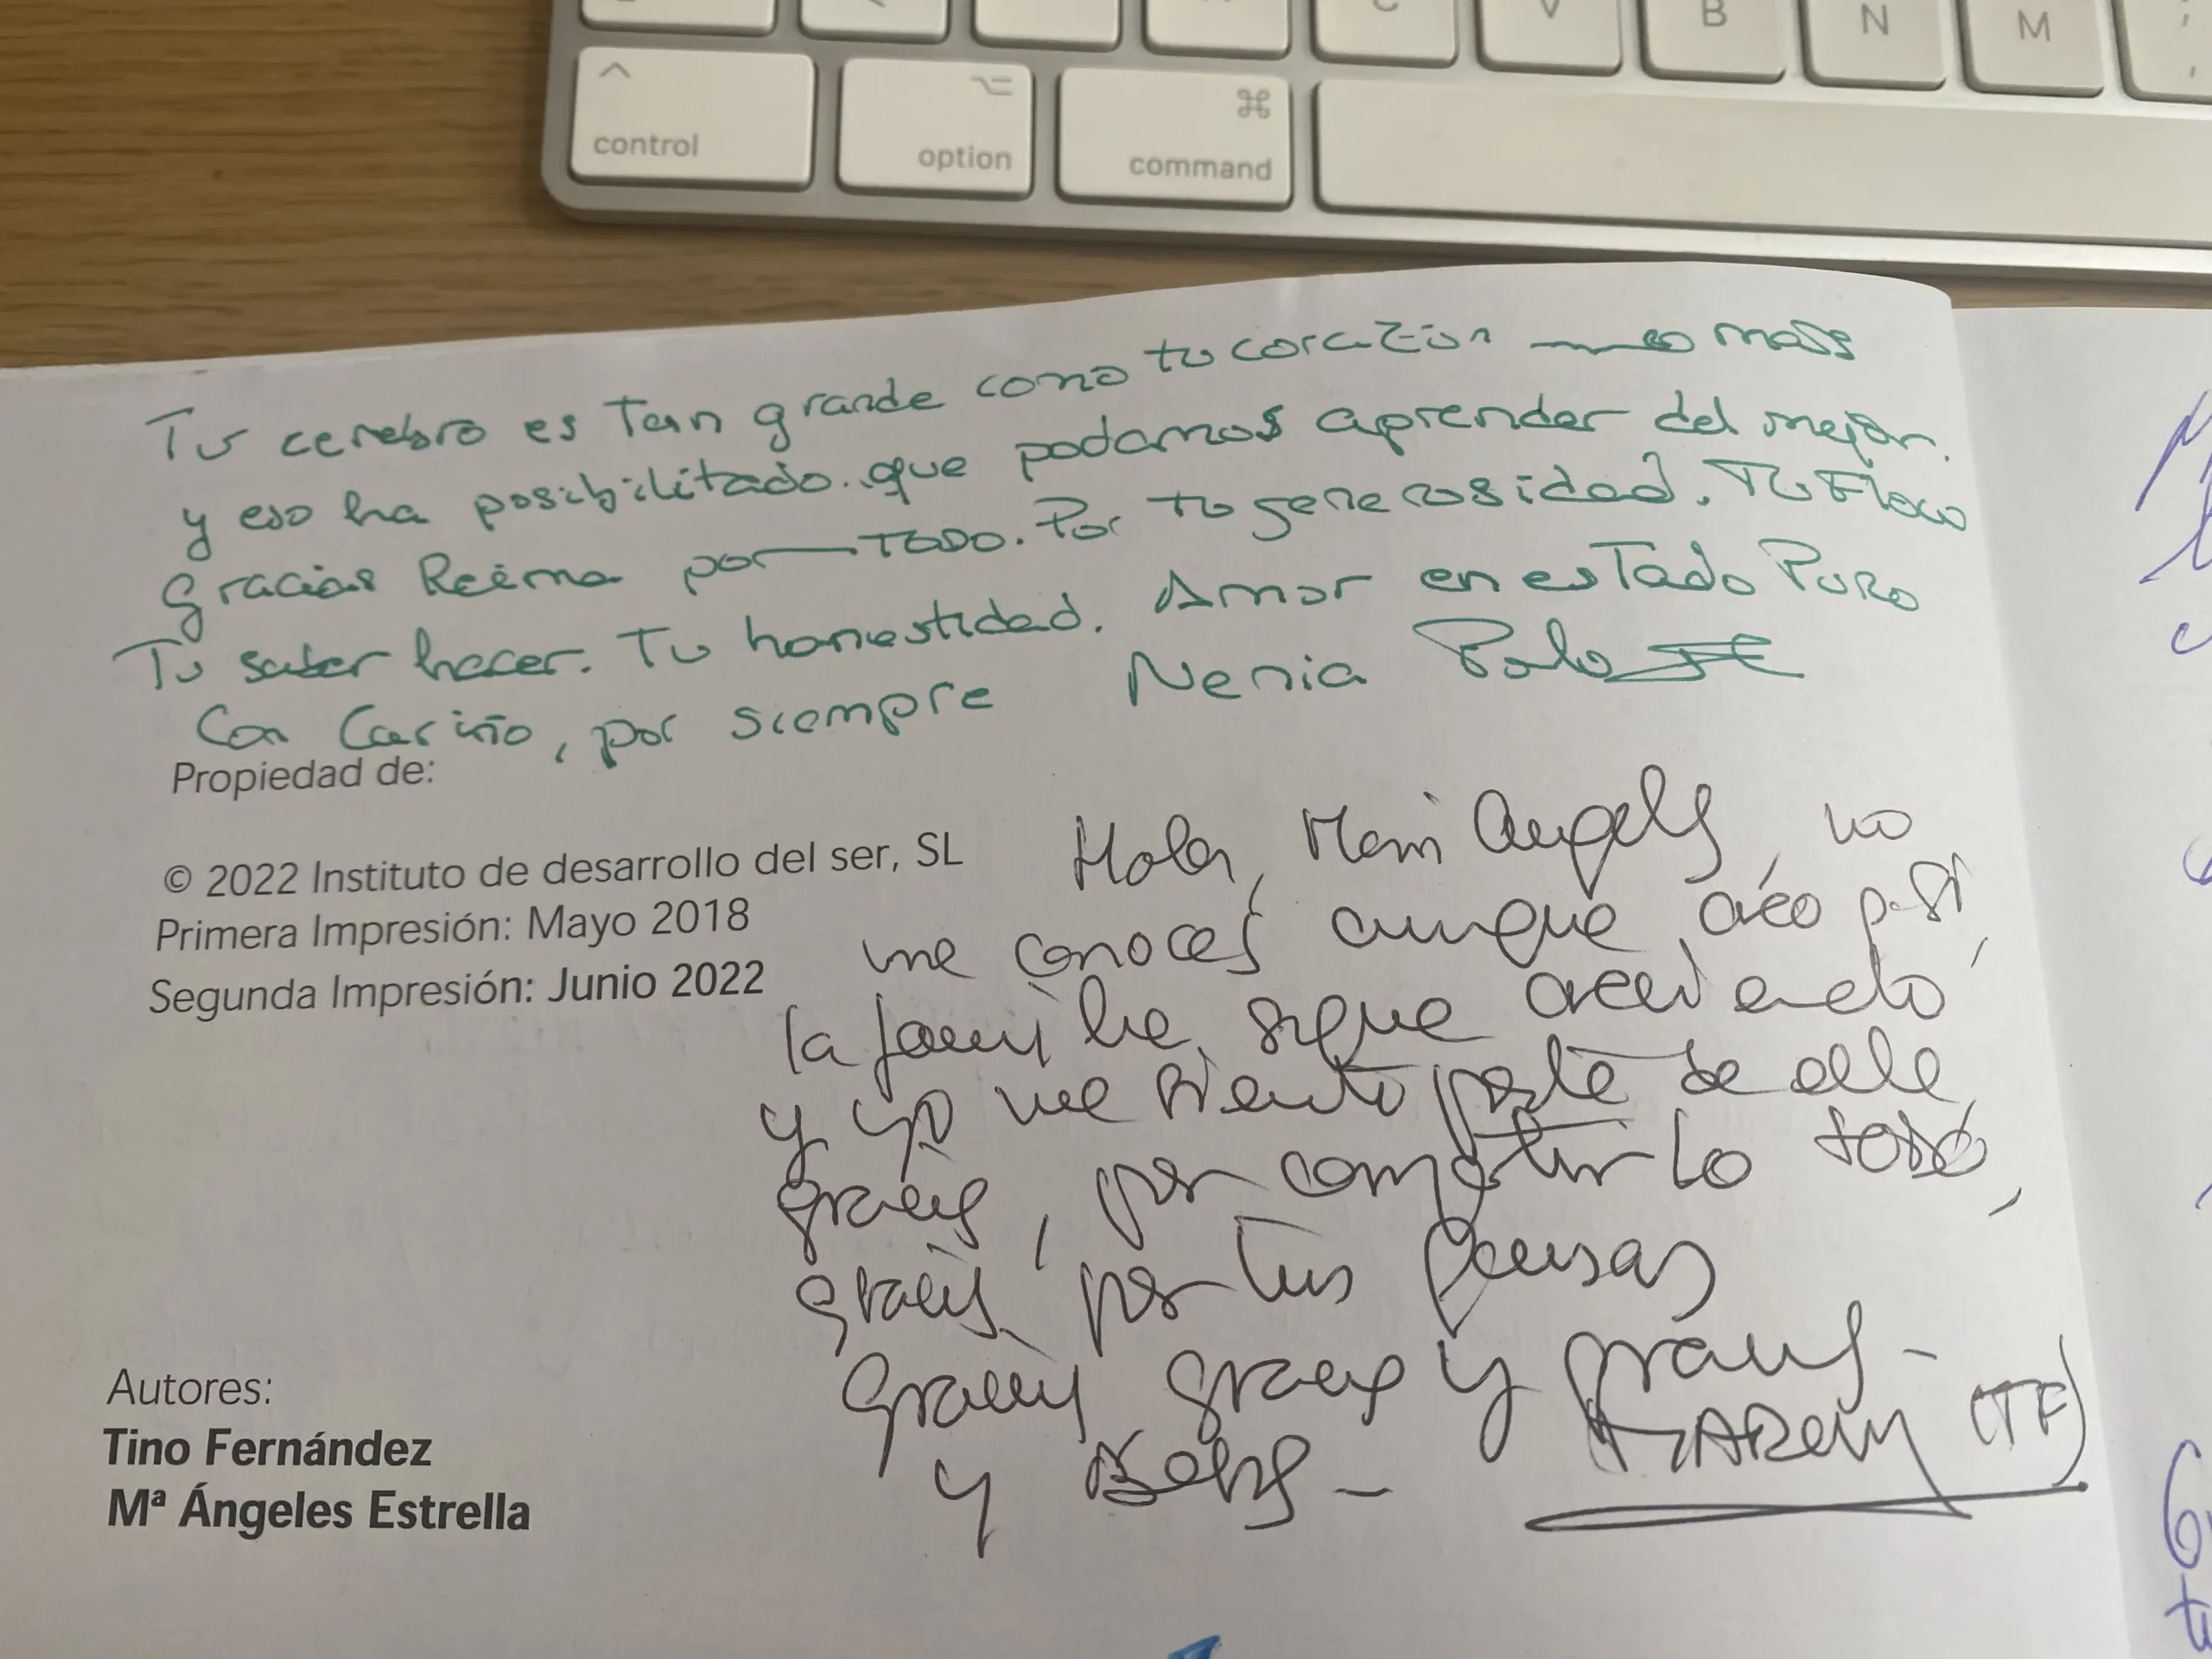 control
option
command
C V B N M
Tu cerebro es Tan grande como tu corazón o mass
y eso ha posibilitado que podamos aprender del mejor.
Gracias Reema por TODO. Por tu generosidad. Tu Flow
Tu saber hacer. Tu honestidad. Amor en esTado PURO
Con Cariño, por siempre Nenia
Propiedad de:
© 2022 Instituto de desarrollo del ser, SL
Primera Impresión: Mayo 2018
Segunda Impresión: Junio 2022
Hola, Mari Angels, no
me conoces aunque creo q. si,
la familia sigue creciendo
y yo me siento parte de ella
gracias, por compartirlo todo,
gracias por tus
gracias gracias y gracias -
y Besos - (TF)
Autores:
Tino Fernández
Mª Ángeles Estrella